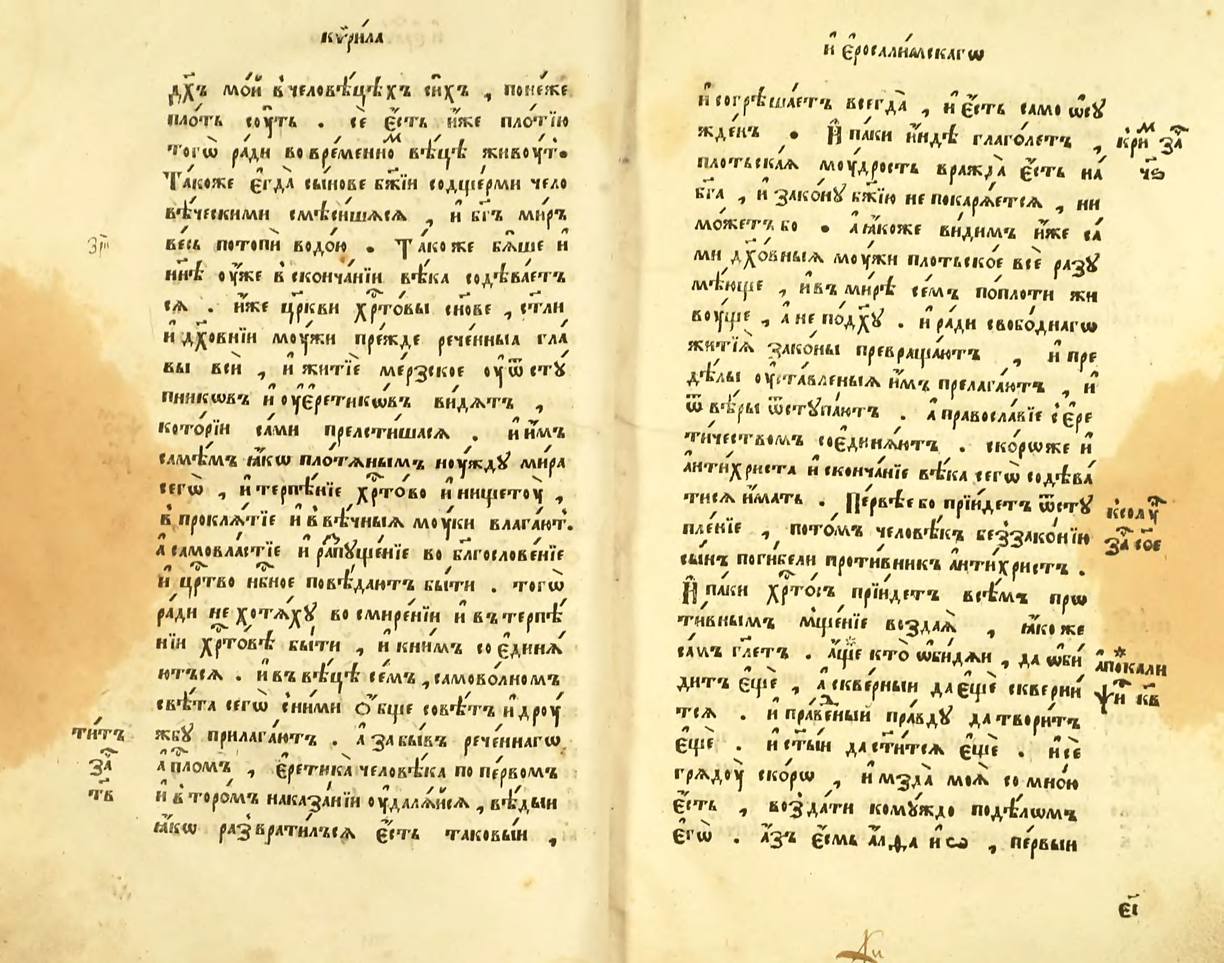 кѷри́ла
дх҃ъ мо́й в̾человѣ́цѣхъ си́хъ , поне́же
пло́ть сꙋ́ть . сѐ є҆́сть и҆́же пло́тїю
тогѡ̀ ра́ди во вре́менномъ вѣ́цѣ живꙋ́т.
Та́коже є҆гда̀ сы́нове бж҃їи содще́рми чело
вѣ́ческими смѣси́шяся , и҆ бг҃ъ ми́ръ
ве́сь потопѝ водо́ю . Та́коже бя́ше и҆
нн҃ѣ ᲂу҆́же в̾сконча́нїи вѣ́ка содѣва́етъ
ся . и҆́же цр҃кви хрⷭ҇то́вы сн҃ове , ст҃ли
и҆ дх҃о́внїи мꙋ́жи пре́жде рече́нныꙗ гла́
вы всѝ , и҆ житїѐ ме́рзское ᲂу҆ ѿстꙋ́
пникѡвъ и҆ ᲂу҆ є҆ре́тикѡвъ ви́дятъ ,
кото́рїи са́ми прелсти́шася . и҆ и҆̀мъ
самѣ́мъ ꙗ҆́кѡ пло́тянымъ нꙋ́ждꙋ ми́ра
сегѡ̀ , и҆ терпѣ́нїе хрⷭ҇то́во и҆ нищетꙋ̀ ,
в̾прокля́тїе и҆ в̾вѣ́чныя мꙋ́ки влага́ют.
а҆ самовла́стїе и҆ ра́пꙋще́нїе во бл҃гослове́нїе
и҆ црⷭ҇тво нбⷭ҇ное повѣ́даютъ бы́ти . тогѡ̀
ра́ди не хотя́хꙋ во смире́нїи и҆ въ терпѣ́
нїи хрⷭ҇то́вѣ бы́ти , и҆ книмъ со є҆диня́
ютъся . и҆ въ вѣ́цѣ се́мъ , самово́лномъ
свѣ́та сегѡ̀ сни́ми ѻ҆́бще совѣ́тъ и҆ дрꙋ́
жбꙋ прилага́ютъ . а҆ забы́въ рече́ннагѡ
а҆пⷭ҇ломъ , є҆ретика̀ человѣ́ка по пе́рвомъ
и҆ вто́ромъ наказа́нїи ᲂу҆даля́йся , вѣ́дыи
ꙗ҆́кѡ раз̾врати́лъся є҆́сть таковы́и ,
ти́тъ
за҃
т҃в
и҆ є҆росали́мскагѡ
и҆ согрѣша́етъ всегда̀ , и҆ є҆́сть само ѡ҆сꙋ
жде́нъ . И҆ па́ки и҆́ндѣ глаго́летъ ,
пло́тьскаꙗ мꙋ́дрость вражда̀ є҆́сть на́
бг҃а , и҆ зако́нꙋ бж҃їю не покаря́ется , ни
мо́жетъ бо . а҆ ꙗ҆́коже ви́димъ и҆́же са́
ми дх҃о́вныя мꙋ́жи пло́тьское всѐ разꙋ
мѣ́юще , и҆ въ ми́рѣ се́мъ по́плоти жи
вꙋ́ще , а҆ не по́дх҃ꙋ . и҆ ра́ди свобо́днагѡ
житїя̀ зако́ны превраща́ютъ , и҆ пре
дѣ́лы ᲂу҆ста́вленыя и҆̀мъ прелага́ютъ , и҆
ѿ вѣ́ры ѿстꙋпа́ютъ . а҆ правосла́вїе с̾є҆ре
ти́чествомъ соє҆диня́ютъ . ско́рѡже и҆
а҆нти́христа и҆ сконча́нїе вѣ́ка сегѡ̀ содѣ́ва
тися и҆́мать . Пе́рвѣе бо прїи́детъ ѿстꙋ
пле́нїе , пото́мъ человѣ́къ беззако́нїю
сы́нъ поги́бели проти́вникъ а҆нти́христъ .
И҆ па́ки хрⷭ҇то́съ прїи́детъ всѣ́мъ прѡ
ти́внымъ мще́нїе возда́я , ꙗ҆́коже
са́мъ гл҃етъ . а҆́ще кто̀ ѡ҆би́дяи , да ѡ҆би
дитъ є҆щѐ , а҆ скве́рныи да є҆щѐ скверни́
тся . и҆ пра́ведныи пра́вдꙋ да твори́тъ
є҆щѐ . и҆ ст҃ы́и да ст҃и́тся є҆щѐ . и҆ сѐ
грядꙋ̀ ско́рѡ , и҆ мзда̀ моя̀ со мно́ю
є҆́сть , возда́ти комꙋ́ждо по дѣ́лѡмъ
є҆гѡ̀ . а҆́зъ є҆́смь а҆́лфа и҆ ѡ , пе́рвыи
кри́м за҃
ч҃ѕ
ксолꙋ́
за҃ со҃е
а҆пока́ли
ѱи҃ кв҃
є҃і